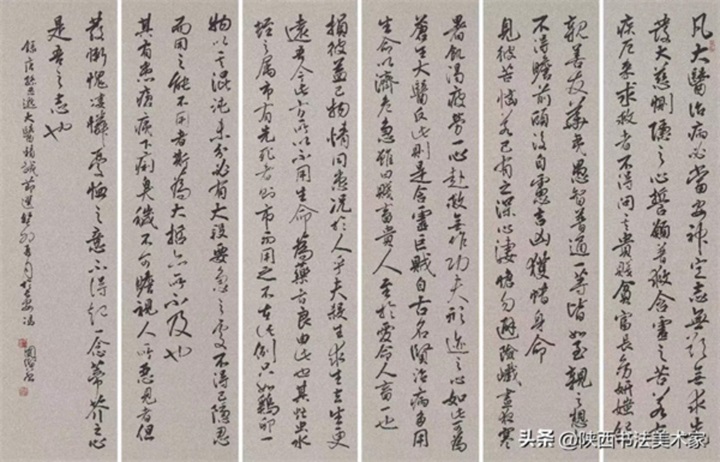 凡大醫治病必當安神定志無欲無求先
發大慈惻隱之心誓願普救含靈之苦若有
疾厄來求救者不得問之貴賤貧富長幼妍媸怨
親善友華夷愚智普通一等皆如至親之想
不得瞻前顧後自慮吉凶護惜身命
見彼苦惱若己有之深心悽愴勿避險巇晝夜寒
暑飢渴疲勞一心赴救無作功夫形迹之心如此可為
蒼生大醫反此則是含靈巨賊自古名賢治病多用
生命以濟危急雖曰賤畜貴人至於愛命人畜一也
損彼益己物情同患況於人乎夫殺生求生去生更
遠吾今此方所以不用生命為藥者良由此也其虻虫水
蛭之属市有先死者則市而用之不在此例只如鷄卵一
物以其混沌未分必有大段要急之處不得已隱忍
而用之能不用者斯為大哲亦所不及也
其有患瘡痍下痢臭穢不可瞻視人所惡見者但
發慚愧悽憐憂恤之意不得起一念蒂芥之心
是吾之志也
錄唐孫思邈大醫精誠節選癸卯年
头条 @陕西书法美术家